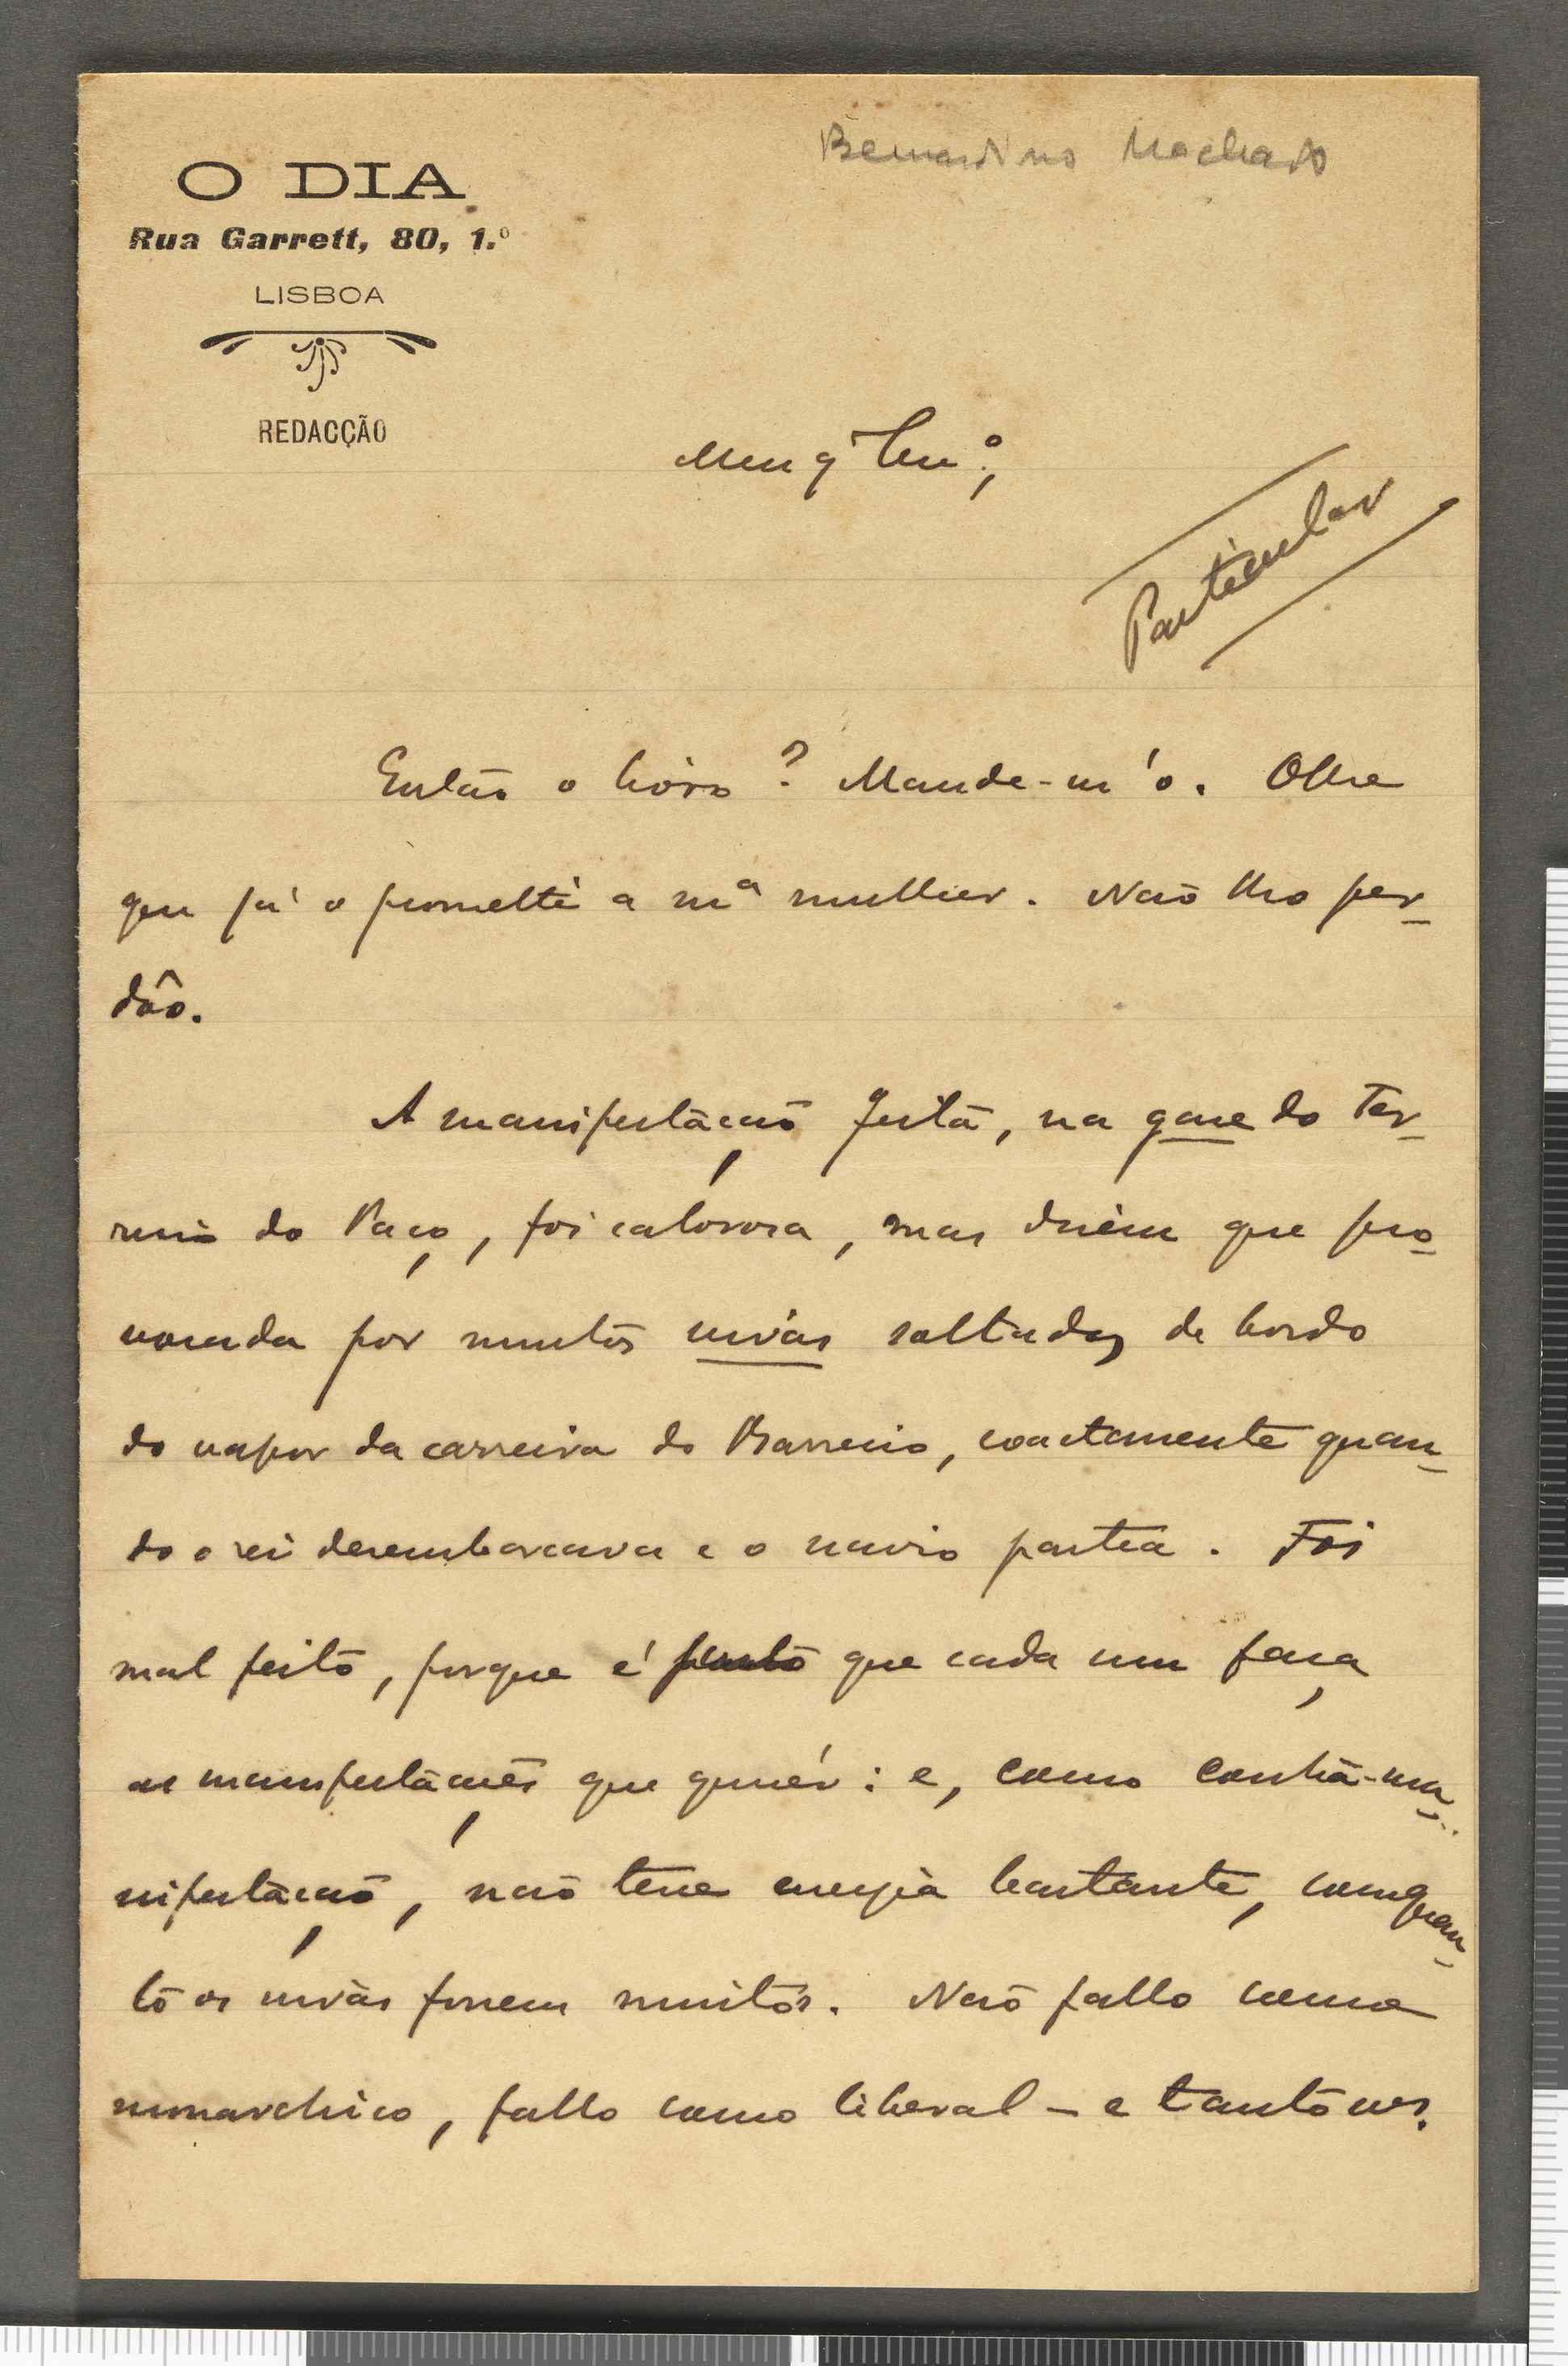 O DIA
Bernardino Machado
Rua Garrett, 80, 1.º
LISBOA
REDACÇÃO
Meu q.
Particular
Então o livro? Mande-m'o. Olhe
que já o prometti a mª mulher. Não lho per-
dôo.
A manifestação feita, na gare do Ter-
reiro do Paço, foi calorosa, mas dizem que pro-
vocada por muitos vivas soltados de bordo
do vapor da carreira do Barreiro, exactamente quan-
do o rei desembarcava e o navio partia. Foi
mal feito, porque é justo que cada um faça
as manifestações que quizér: e, como contra-ma-
nifestação, não teve energia bastante, comquan-
to os vivas fossem muitos. Não fallo como
monarchico, fallo como liberal – e tanto